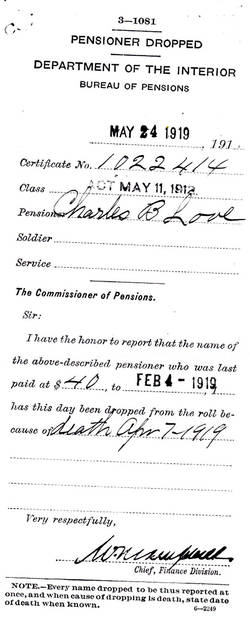 3—1081
PENSIONER DROPPED
DEPARTMENT OF THE INTERIOR
BUREAU OF PENSIONS
MAY 24 1919, 191
Certificate No. 1022414
Class ACT MAY 11, 1912.
Pensioner Charles B Love
Soldier
Service
The Commissioner of Pensions.
Sir:
I have the honor to report that the name of
the above-described pensioner who was last
paid at $ 40, to FEB 4 - 1919,
has this day been dropped from the roll be-
cause of death Apr 7-1919
Very respectfully,
Chief, Finance Division.
NOTE.—Every name dropped to be thus reported at
once, and when cause of dropping is death, state date
of death when known.
6—2249